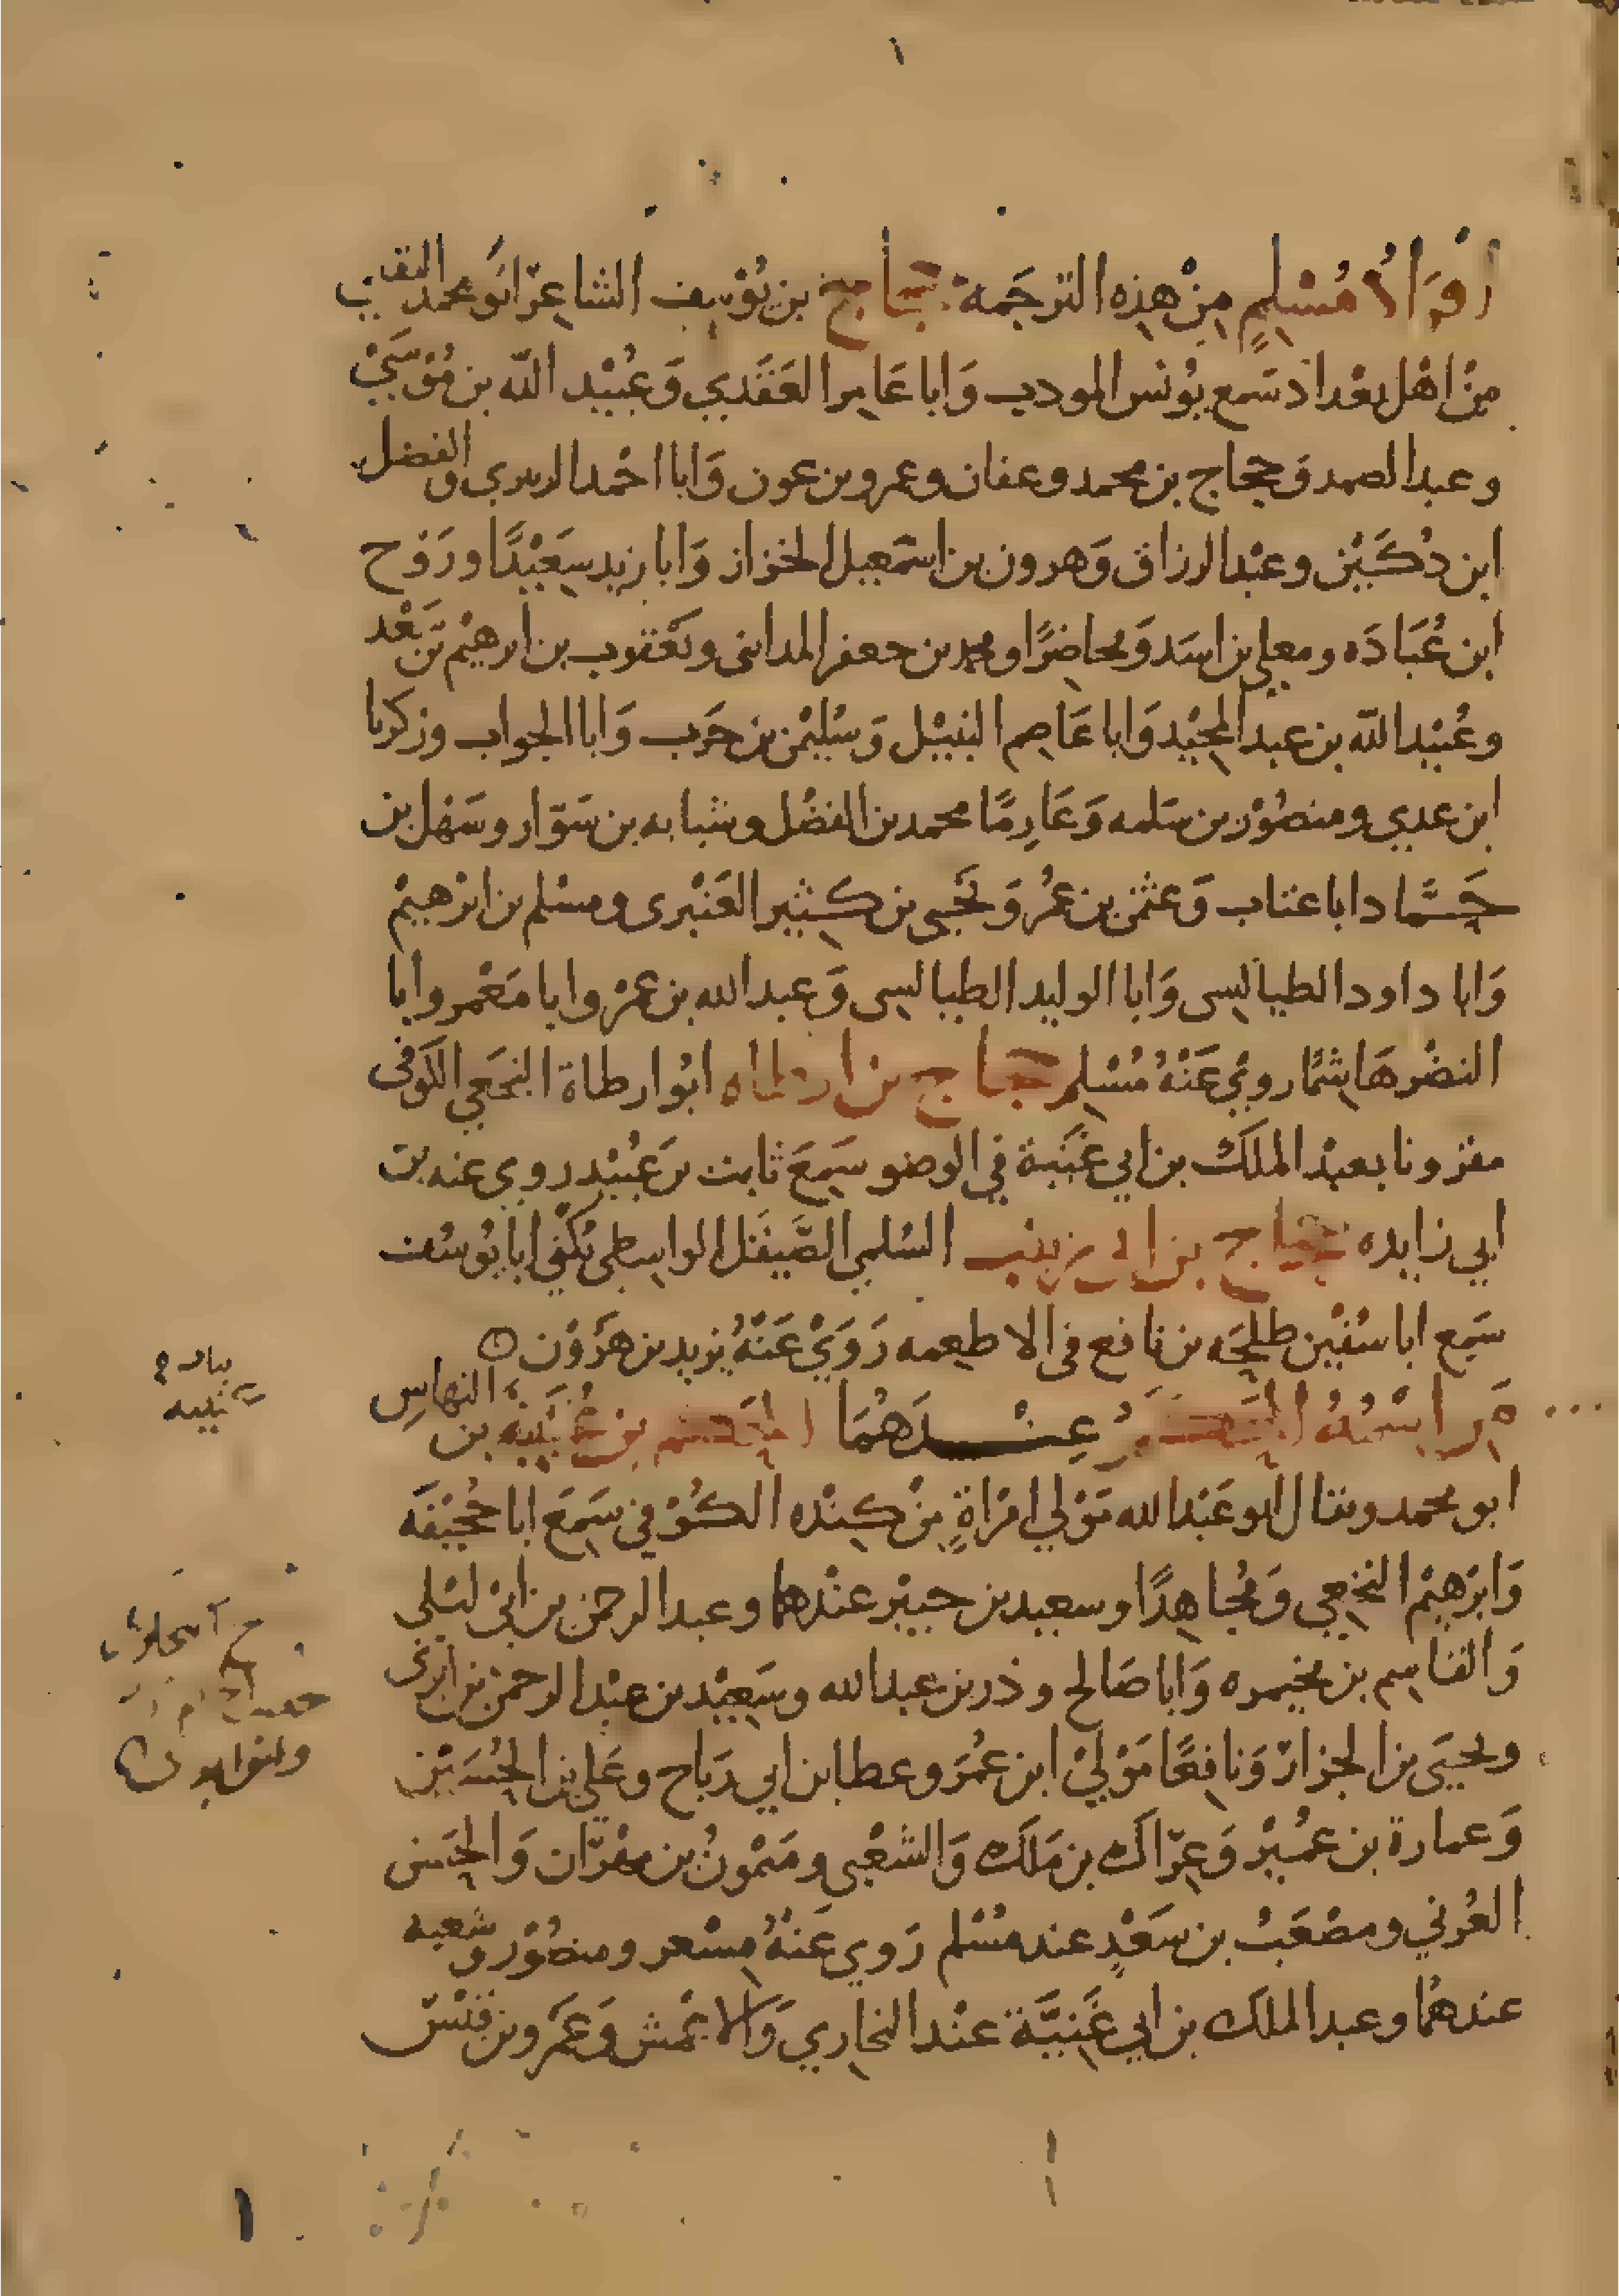 ١
افراد مُسْلِمٍ مِنْ هذِه الترجَمة حجاج بن يُوْسِف الشاعِر ابَو محمد الثقفي
مِنْ اهْل بغداد سَمع يُونس المودب وَابا عَامِر العَقَدِي وَعُبَيْد الله بن مُوْسَيْ
وعبد الصمد وَحجاج بن محمد وعفان وعمرو بن عون وَابا احْمد الزبيري والفضل
ابن دُكَيْن وعبْد الرزاق وَهرون بن اسمَعيل الخزاز وَابا زيد سَعِيْدًا ورَوْح
ابن عُبَادَه ومعلي بن اسَد وَمحاضِرًا ومحمد بن جعفر المدائنى ويَعْقوب بن ابرهيْم بن سَعْد
وعُبَيْد الله بن عبد المجِيْد وَابا عَاصِم النبيْل وَسُليمْن بن حَرب وَابا الجواب وزكريا
ابن عدي ومنصُوْر بن سَلمه وَعَارِمًا محمد بن الفضْل وشبابه بن سَوّار وسَهْل بن
حَمَّاد ابا عتاب وَعثمْن بن عُمر وَيَحْيى بن كَثِير العَنْبرى ومسْلم بن ابرْهيمْ
وَابا داود الطيالِسى وَابا الوليد الطيالسِى وَعبد الله بن عمرْ وابا مَعْمر وابا
النضْر هَاشِمًا روي عَنْهُ مُسْلِم حجاج بن ارطاه ابُوا رطاة النخَعِي الكوفى
مقرونا بعبْد الملَك بن ابي غَنِيَة في الوضو سَمِعَ ثابت بن عُبَيْدٍ روي عنه بن
ابي زايده حجاج بن ابى زينب السُلمِي الصَّيقَل الواسِطي يُكنْي ابا يُوسُف
سَمِع ابا سفيْن طلحَه بن نافع فى الاطعِمه رَوَيْ عَنْهُ يزيد بن هرَوْن
مَن اسْمُهُ الحَكَمُ عِنْدَهُمَا الحَكَم بن عُتَيْبَة بن النهاسِ
ابو محمد ويقال ابو عَبْد الله مَوْلي امْرَاةٍ مِنْ كِنْده الكُوْفي سَمِعَ ابا جُحَيْفَه
وَابرَهِيمْ النخَعِي وَمُجاهِدًا وسعيد بن جبيْر عنْدهما وعبد الرحمن بن ابىْ ليْلى
وَالقاسِم بن مخيمره وَابا صَالح وذر بن عبد الله وسَعِيْد بن عبْد الرحمْن بن ابزى
ويحيَى بن الجزار وَنافِعًا مَوْليْ ابن عُمَر وعطا بن ابي رَبَاح وعَلي بن الحُسَيْن
وَعمارة بن عمَيْرْ وَعِرّاك بن مَلك وَالشعْبى ومَيْمُونْ بن مهْرَان وَالحَسَن
العُرَني ومصْعَبْ بن سَعْدٍ عند مسْلم رَوي عَنْهُ مِسْعر ومنصُوْر وشعبه
عندهُما وعبد الملَك بن ابي غَنِيَّة عنْد البخارِي وَالاعْمش وَعَمْرو بن قيْسْ
١